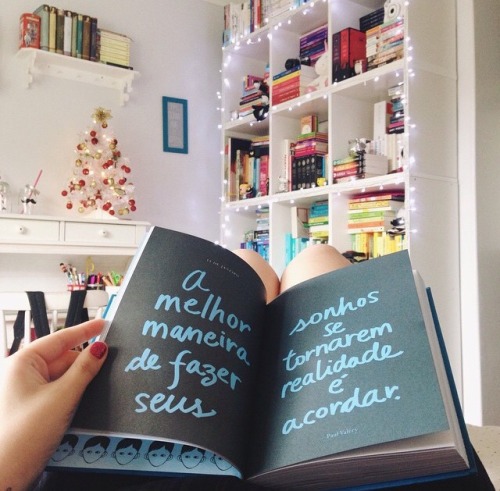 11 DE JANEIRO
a
melhor
maneira
de fazer
seus
sonhos
se
tornarem
realidade
é
acordar.
Paul Valéry